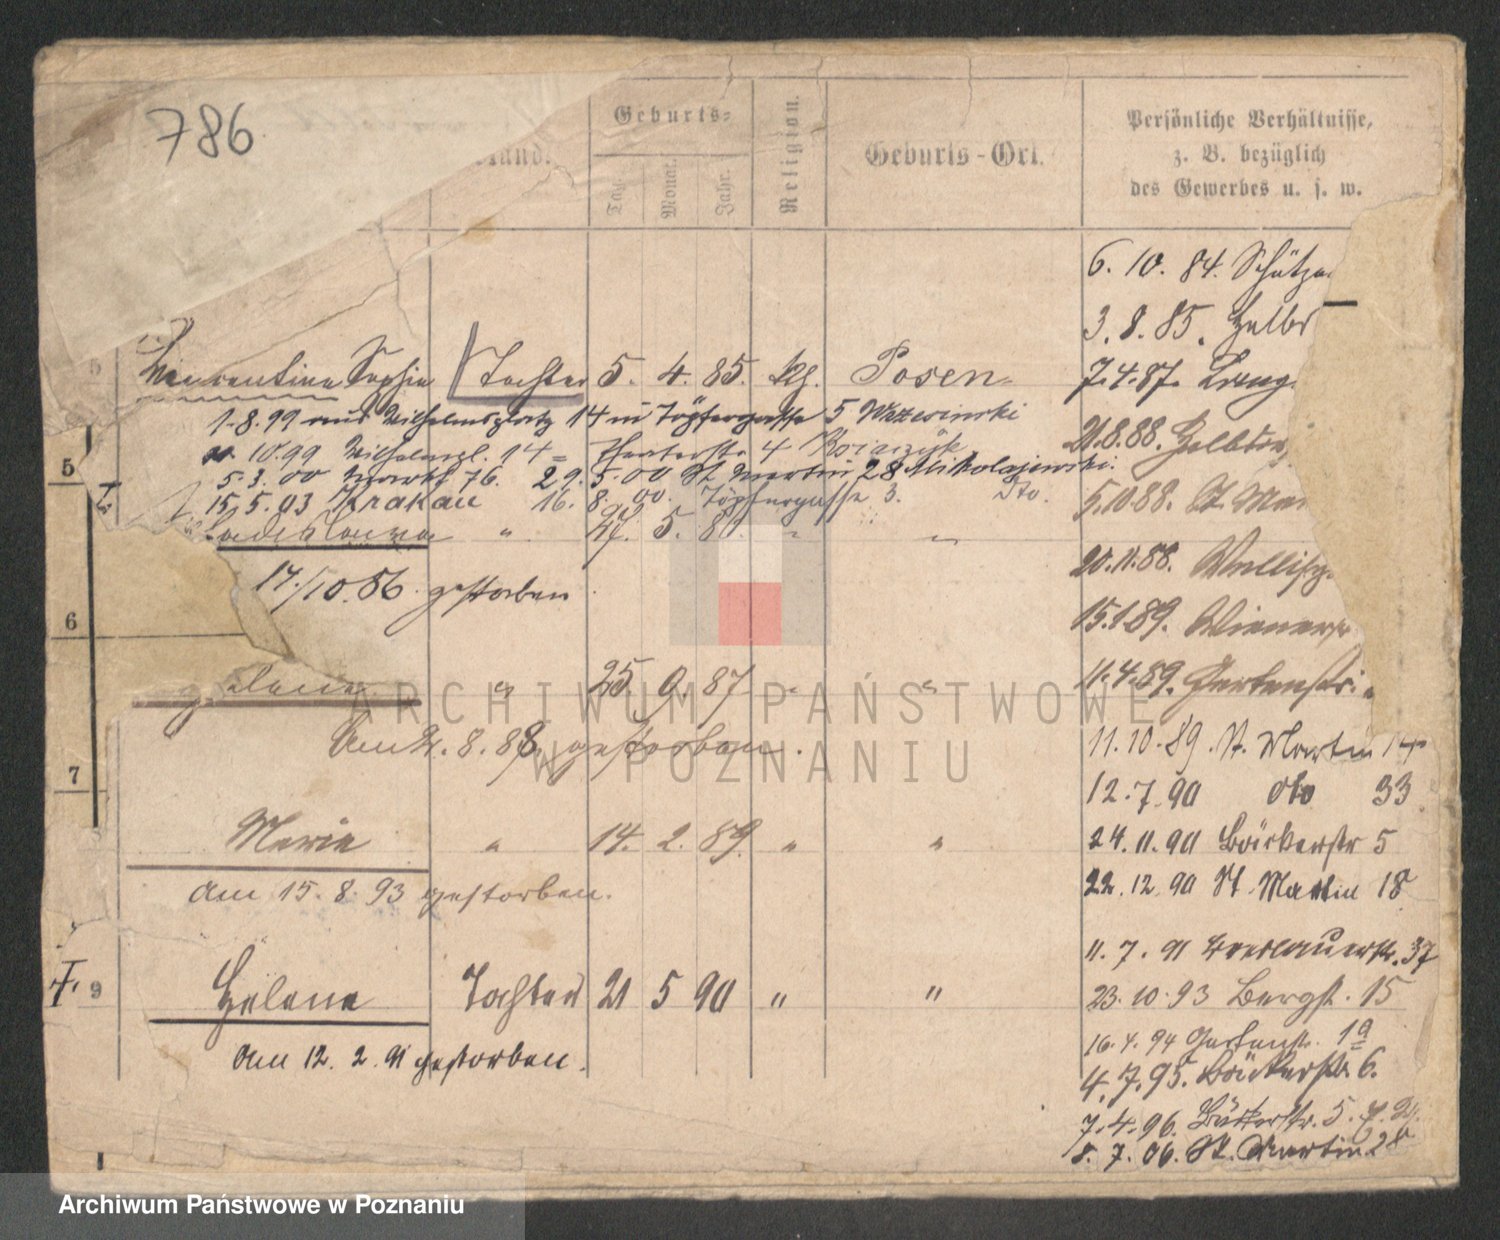 786
Stand.
Geburts-
Tag.
Monat.
Jahr.
Religion.
Geburts-Ort.
Persönliche Verhältnisse,
z. B. bezüglich
des Gewerbes u. s. w.
6. 10. 84.
3. 8. 85.
Sophie Tochter 5. 4. 85. kth. Posen
7. 4. 87.
1. 8. 99 aus Wilhelmsplatz 14 in Töpfergasse 5
21. 8. 88.
10.99 Wilhelmspl. 14 = Theaterstr. 4
5. 3. 00 Markt 76. 29. 5. 00 St. Martin 28 Mikolajewski.
15. 5. 03 Krakau 16. 8. 00. Töpfergasse 3. Dto.
5.10.88. St. Mar
ladislawa " 27. 5. 86. " "
20.11.88.
17./10.86. gestorben
15.1.89. Wienerstr
elene " 25. 9. 87 " "
11.4.89. Gartenstr.
Am 21. 8. 88 gestorben.
11. 10. 89. St. Martin 14
12. 7. 90 dto 33
Marie " 14. 2. 89. " "
24. 11. 90 Bäckerstr 5
am 15. 8. 93 gestorben.
22. 12. 90 St. Martin 18
11. 7. 91 Breslauerstr. 37
9 Helene Tochter 21 5 90 " "
23. 10. 93 Bergstr. 15
Am 12. 2. 91 gestorben.
16. 4. 94 Gartenstr. 1a
4. 7. 95. Bäckerstr. 6.
7. 4. 96. Bäckerstr. 5.
8. 7. 06. St. Martin 28
5
6
7
ARCHIWUM PAŃSTWOWE
W POZNANIU
Archiwum Państwowe w Poznaniu